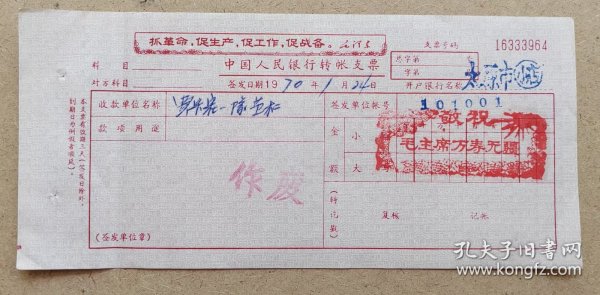 抓革命,促生产,促工作,促战备。毛泽东
支票号码 16333964
中国人民银行转帐支票
科目
总字第 号
字第 号
对方科目
签发日期1970年1月24日
开户银行名称
太原市
收款单位名称
签发单位帐号
101001
款项用途
金额
小
大
敬祝
毛主席万寿无疆
作废
(转讫戳)
复核
记帐
(签发单位章)
本支票有效期三天(签发日除外,到期日为例假者顺延)。
孔夫子旧书网
www.kongfz.com